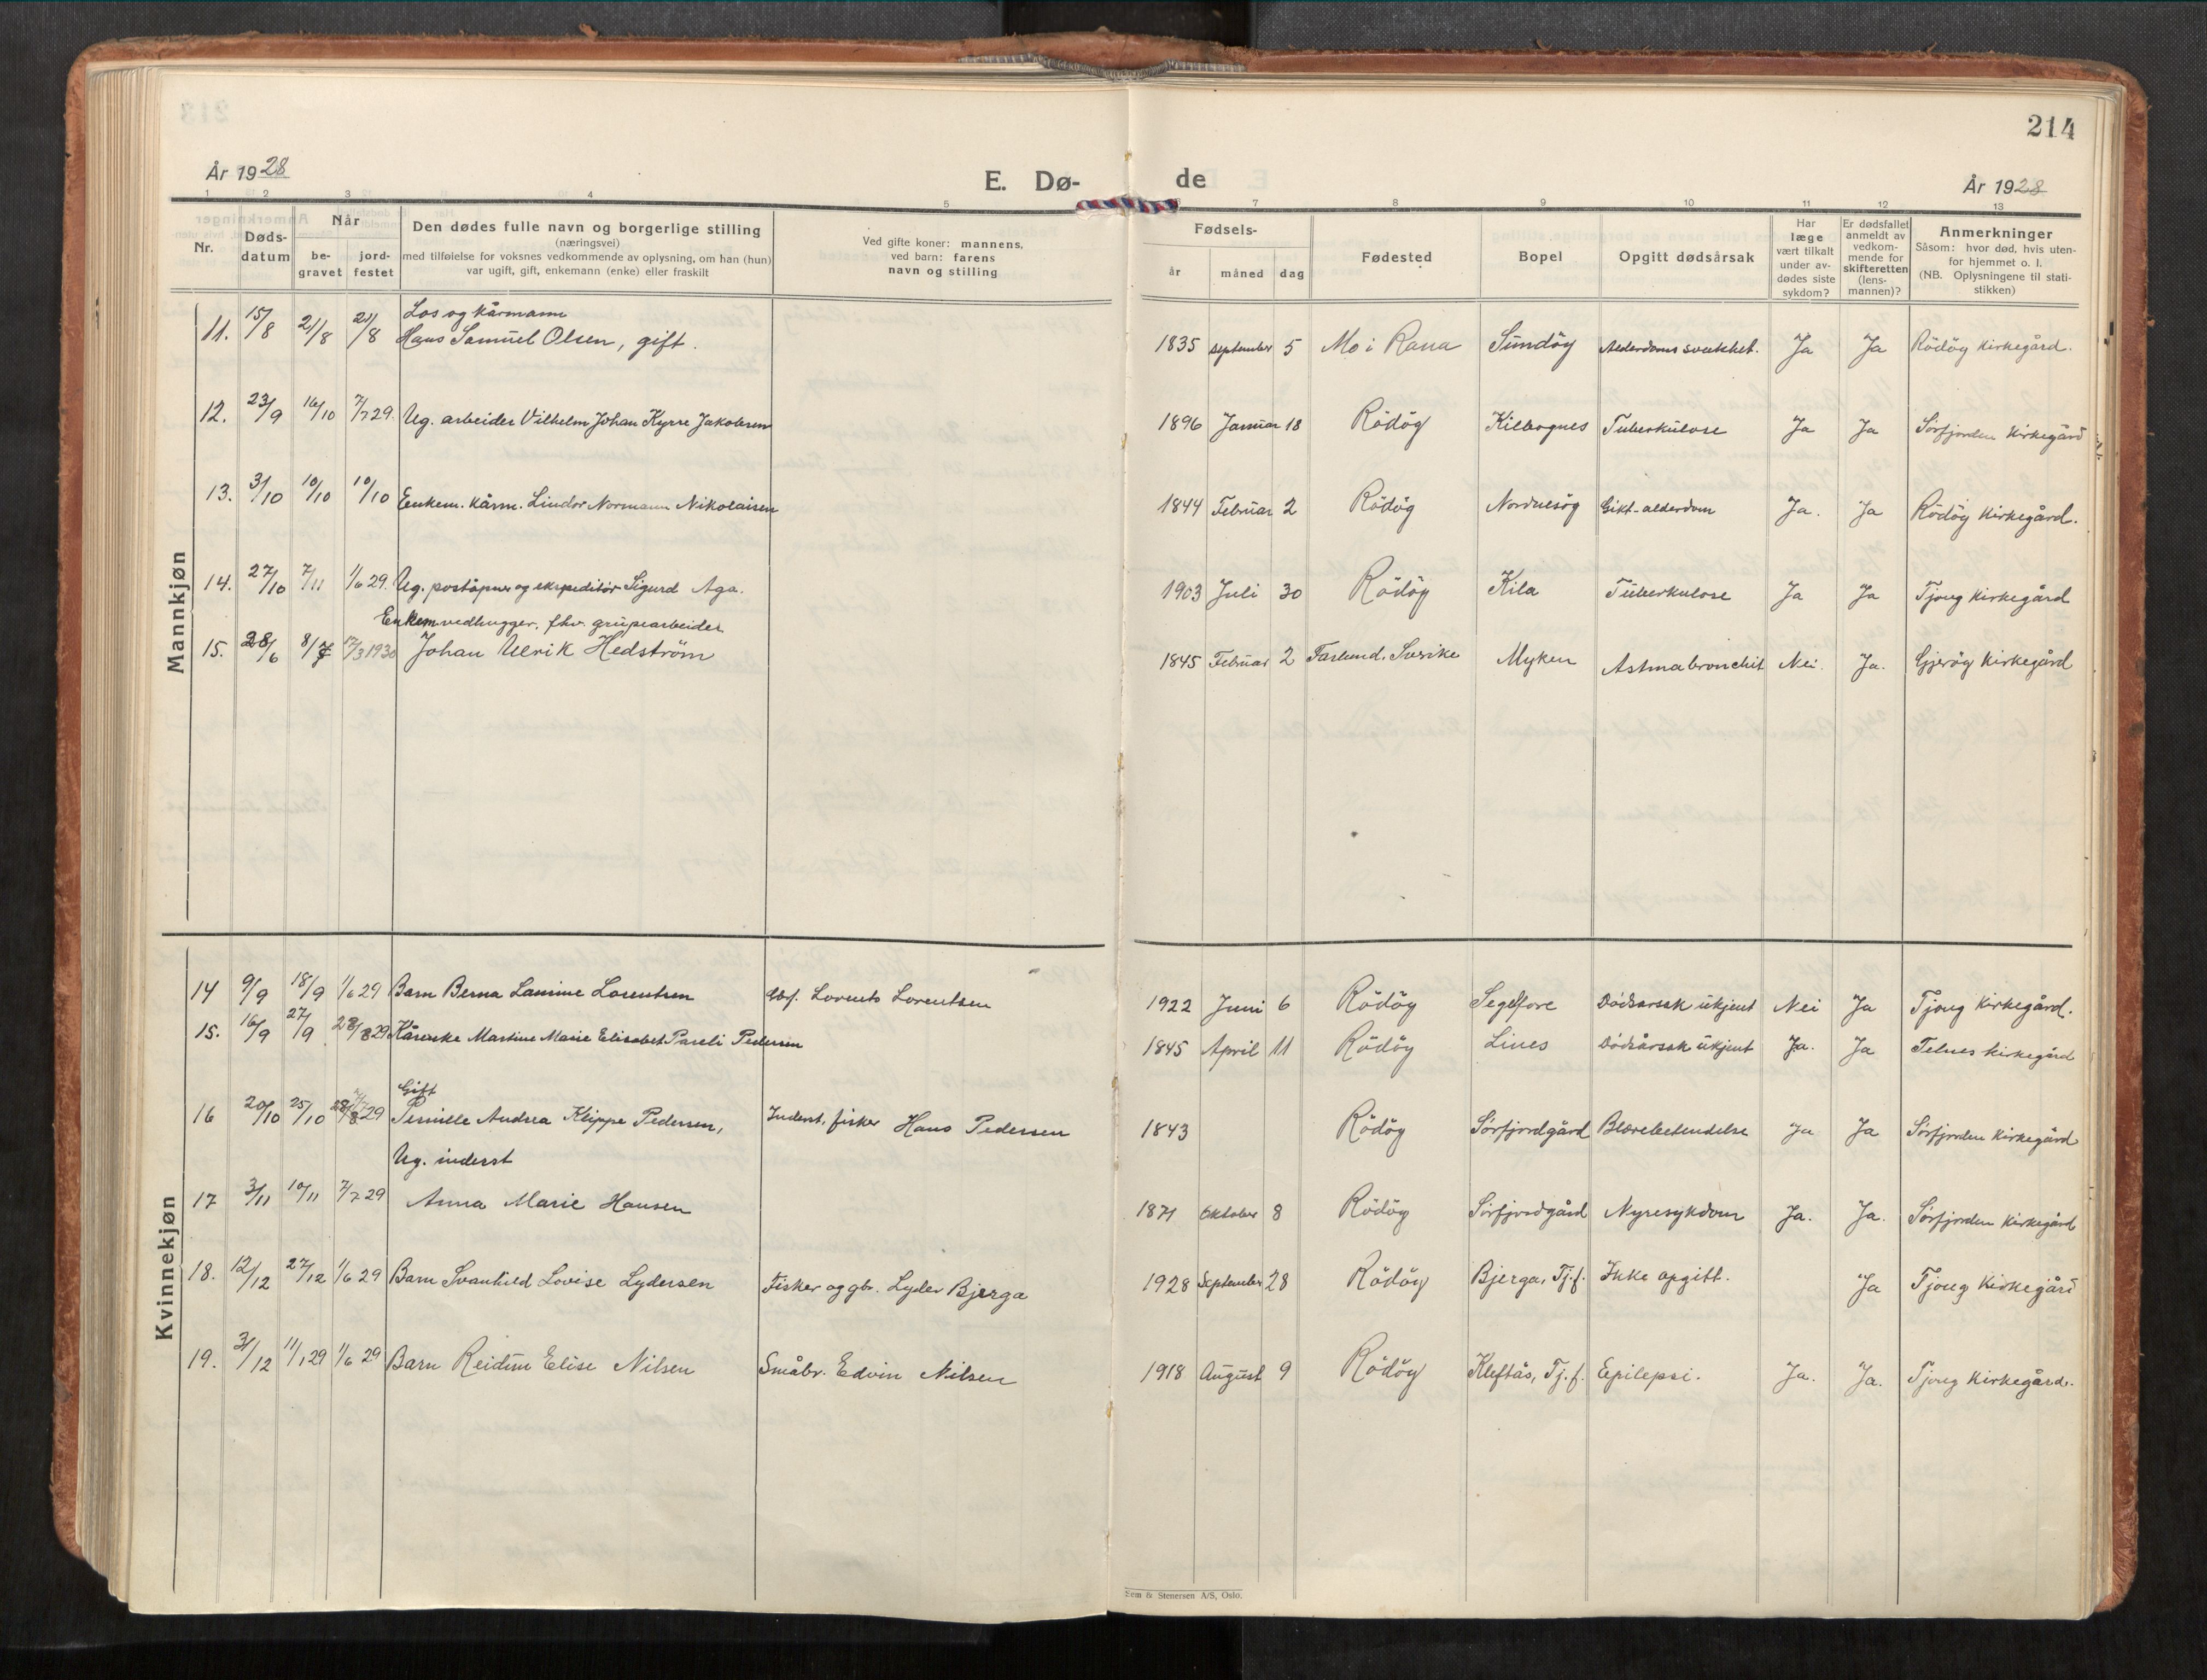 214
År 1928
E. Dø-
de
År 1928
1 2 3 4 5 6 7 8 9 10 11 12 13
Nr.
Døds-
datum
Når
be-
gravet
jord-
festet
Den dødes fulle navn og borgerlige stilling
(næringsvei)
med tilføielse for voksnes vedkommende av oplysning, om han (hun)
var ugift, gift, enkemann (enke) eller fraskilt
Ved gifte koner: mannens,
ved barn: farens
navn og stilling
Fødsels-
år måned dag
Fødested
Bopel
Opgitt dødsårsak
Har
læge
vært tilkalt
under av-
dødes siste
sykdom?
Er dødsfallet
anmeldt av
vedkom-
mende for
skifteretten
(lens-
mannen)?
Anmerkninger
Såsom: hvor død, hvis uten-
for hjemmet o. l.
(NB. Oplysningene til stati-
stikken)
Mannkjøn
Los og kårmann
11. 15/8 21/8 21/8 Hans Samuel Olsen, gift. 1835 september 5 Mo i Rana Sundöy Alderdomssvekket. Ja Ja Rödöy Kirkegård.
12. 23/9 16/10 7/7 29. Ug. arbeider Vilhelm Johan Kyrre Jakobsen 1896 Januar 18 Rödöy Kilbognes Tuberkulose Ja Ja Sörfjorden Kirkegård
13. 3/10 10/10 10/10 Enkem. kårm. Lindor Normann Nikolaisen 1844 Februar 2 Rödöy Nordnesög Gikt-alderdom Ja. Ja Rödöy Kirkegård.
14. 27/10 7/11 1/6 29. Ug. poståpner og ekspeditör Sigurd Aga. 1903 Juli 30 Rödöy Kila Tuberkulose Ja Ja Tjong Kirkegård
Enkem. vedhugger, fhv. grupearbeider
15. 28/6 8/7 17/3 1930 Johan Ulrik Hedström 1845 Februar 2 Farlund, Sverike Myken Astma bronchit Nei. Ja. Gjeröy Kirkegård
Kvinnekjøn
14 9/9 18/9 1/6 29 Barn Berna Laurine Lorentsen Gbf. Lorents Lorentsen 1922 Juni 6 Rödöy Segelfore Dödsårsak ukjent Nei Ja Tjong Kirkegård.
15. 16/9 27/9 28/8 29 Kårenke Martine Marie Elisabet Pareli Pedersen 1845 April 11 Rödöy Lines Dödsårsak ukjent Ja. Ja Telnes kirkegård
Gift
16 20/10 25/10 28/8 29 Pernille Andrea Klippe Pedersen, Inderst, fisker Hans Pedersen 1843 Rödöy Sörfjordgård Blærebetendelse Ja Ja Sörfjorden Kirkegård
Ug. inderst
17 3/11 10/11 7/7 29 Anna Marie Hansen 1871 Oktober 8 Rödöy Sörfjordgård Nyresykdom Ja. Ja. Sörfjorden Kirkegård
18. 12/12 27/12 1/6 29 Barn Svanhild Lovise Lydersen Fisker og gbr. Lyder Bjerga 1928 September 28 Rödöy Bjerga, Tj.f. Ikke opgitt. Ja Tjong Kirkegård
19. 31/12 11/1 29 1/6 29 Barn Reidun Elise Nilsen Småbr. Edvin Nilsen 1918 August 9 Rödöy Kleftås, Tj.f. Epilepsi. Ja. Ja. Tjong Kirkegård.
Sem & Stenersen A/S, Oslo.